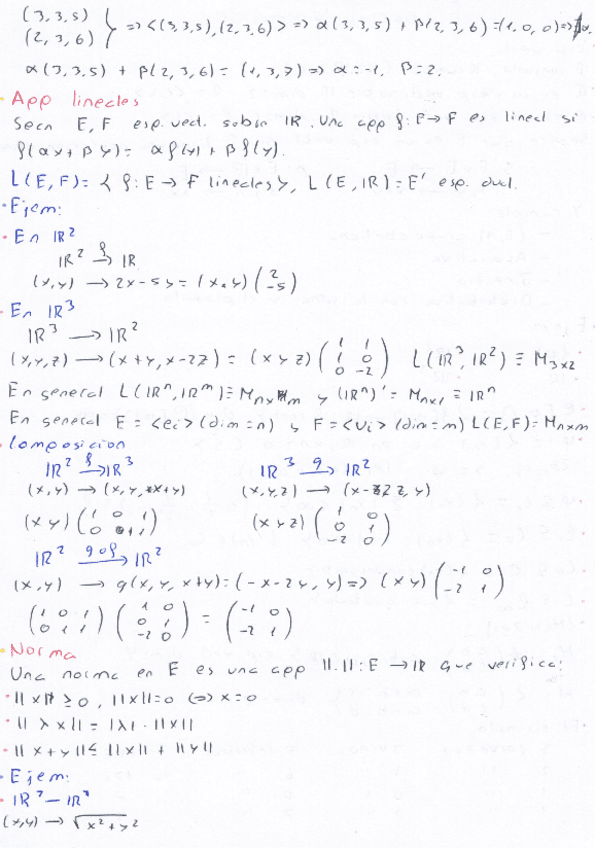 (3,3,5)
(2,3,6) } => <(3,3,5),(2,3,6)> => α(3,3,5) + β(2,3,6) = (1,0,0) => ∄α,
α(3,3,5) + β(2,3,6) = (1,3,7) => α=-1, β=2.
App lineales
Sean E, F esp. vect. sobre IR. Una app f: E→F es lineal si
f(αx + βy) = αf(x) + βf(y).
L(E,F) = { f: E → F lineales }, L(E,IR) = E' esp. dual.
Ejem:
En IR²
IR² f→ IR
(x,y) → 2x-5y = (x,y) (2 -5)
En IR³
IR³ → IR²
(x,y,z) → (x+y, x-2z) = (x y z) (1 1 1 0 0 -2) L(IR³, IR²) ≡ M3x2
En general L(IRⁿ, IRᵐ) ≡ Mnxm y (IRⁿ)' = Mnx1 ≡ IRⁿ
En general E = <ei> (dim=n) y F = <vi> (dim=m) L(E,F) = Mnxm
Composicion
IR² f→ IR³ IR³ g→ IR²
(x,y) → (x,y,x+y) (x,y,z) → (x-2z, y)
(x y) (1 0 1 0 1 1) (x y z) (1 0 0 1 -2 0)
IR² g∘f→ IR²
(x,y) → g(x,y,x+y) = (-x-2y, y) => (x y) (-1 0 -2 1)
(1 0 1 0 1 1) (1 0 0 1 -2 0) = (-1 0 -2 1)
Norma
Una norma en E es una app ||.||: E → IR que verifica:
||x|| ≥ 0, ||x||=0 <=> x=0
||λx|| = |λ| · ||x||
||x+y|| ≤ ||x|| + ||y||
Ejem:
(x,y) → √x²+y²